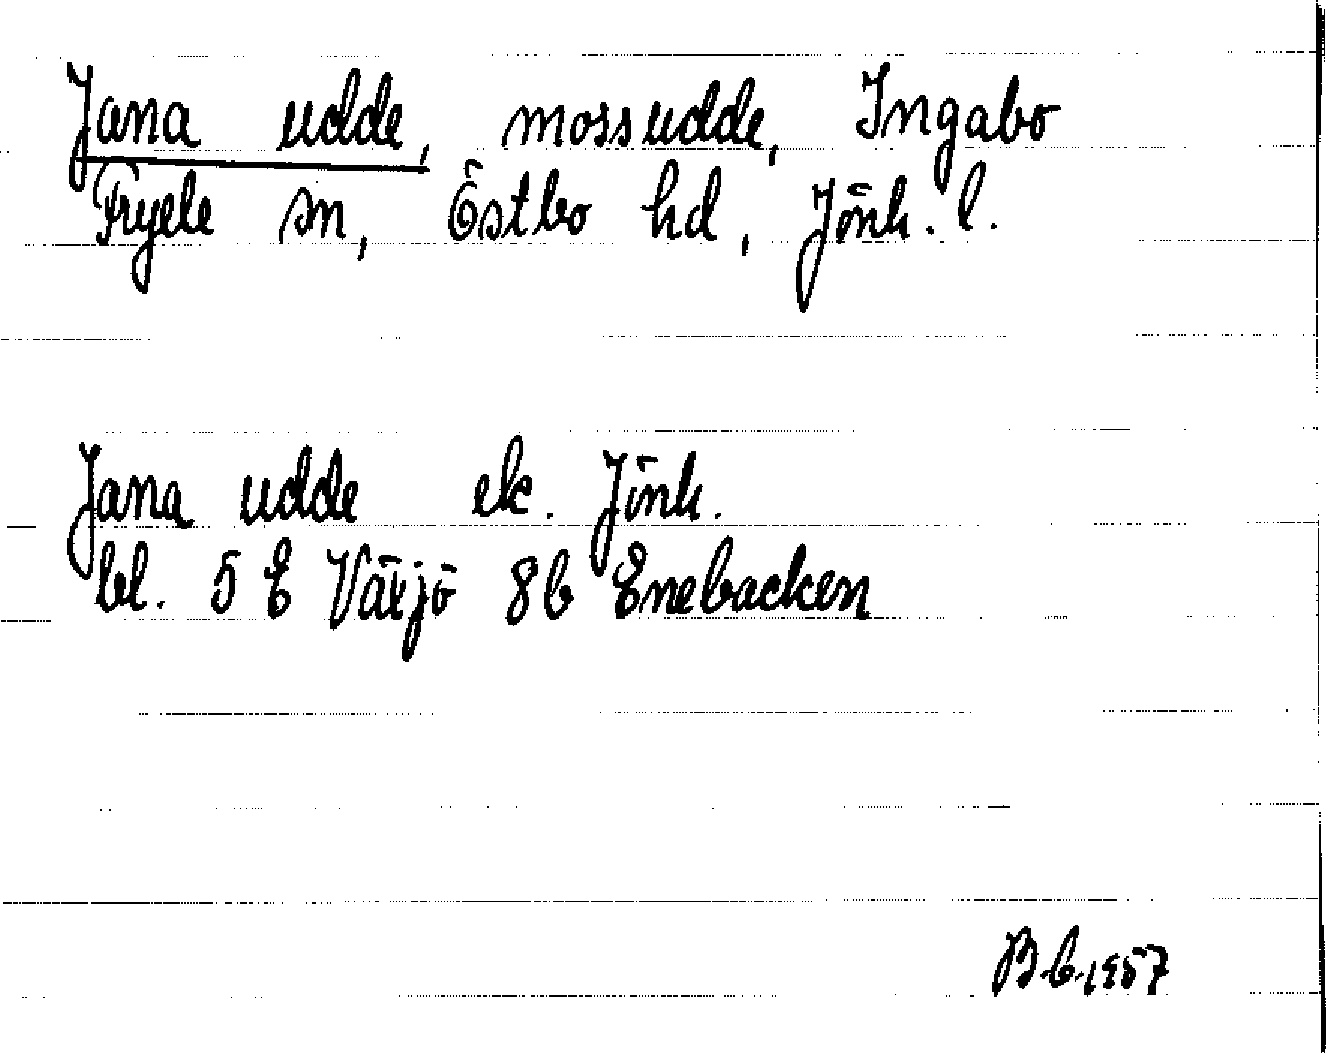 Jana udde, mossudde, Ingabo
Fryele sn, Östbo hd, Jönk. l.
Jana udde ek. Jönk.
bl. 5 E Växjö 8b Enebacken
1957